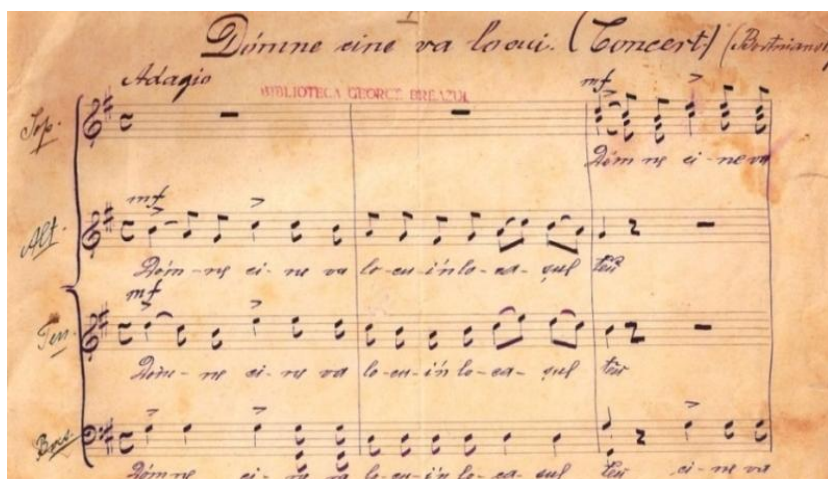 Dómne cine va locui. (Concert) (Bortniansky
Adagio
BIBLIOTECA GEORGE BREAZUL
Sop.
mf
Dóm ne ci - ne va
Alt.
mf
Dóm - ne ci - ne va lo - cu - in lo - ca - șul tĕu
Ten.
mf
Dóm - ne ci - ne va lo - cu - in lo - ca - șul tĕu
Bas.
Dóm ne ci - ne va lo - cu - in lo - ca - sul tĕu ci - ne va